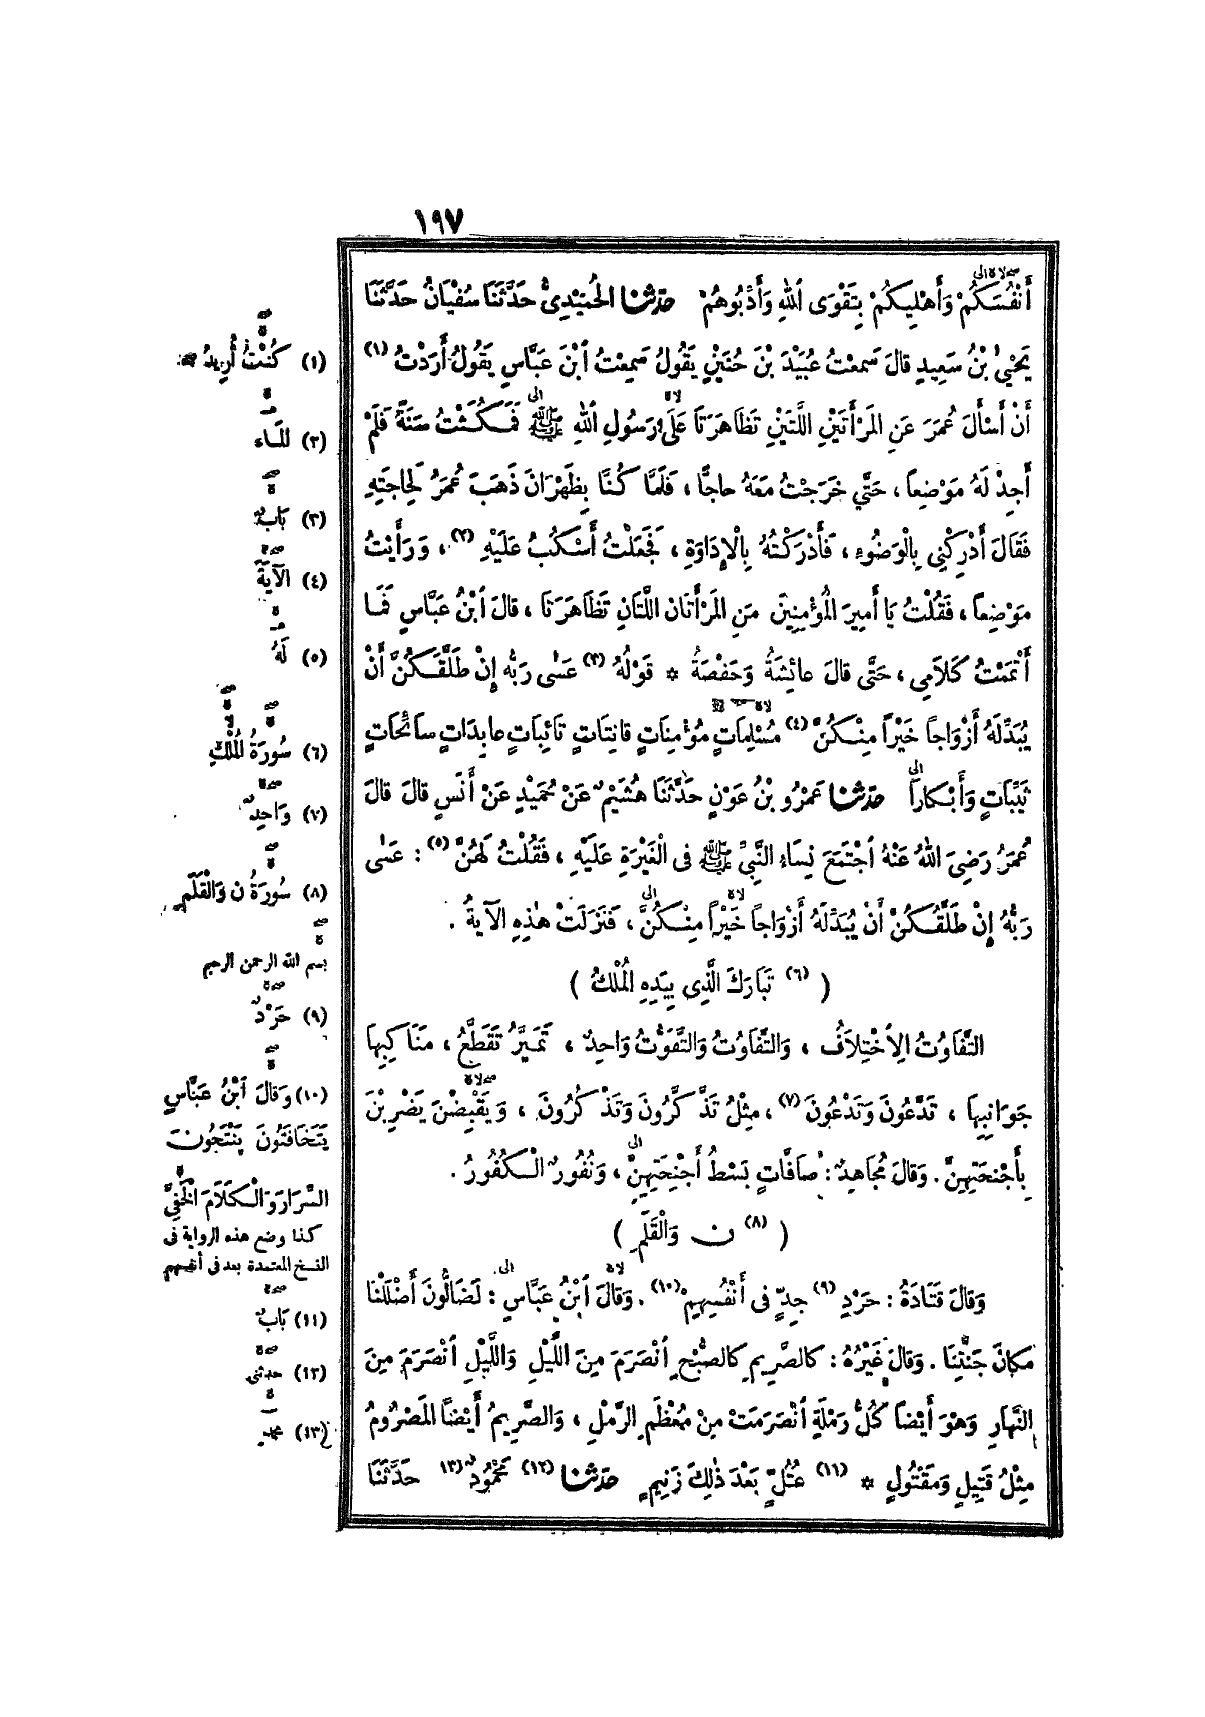 ١٩٧
أَنْفُسَكُمْ وَأَهْلِيكُمْ بِتَقْوَى اللهِ وَأَدِّبُوهُمْ حَدَّثَنَا الْحُمَيْدِيُّ حَدَّثَنَا سُفْيَانُ حَدَّثَنَا
يَحْيَىٰ بْنُ سَعِيدٍ قالَ سَمِعْتُ عُبَيْدَ بْنَ حُنَيْنٍ يَقُولُ سَمِعْتُ ابْنَ عَبَّاسٍ يَقُولُ أَرَدْتُ (١)
أَنْ أَسْأَلَ عُمَرَ عَنِ المَرْأَتَيْنِ اللَّتَيْنِ تَظَاهَرَتَا عَلَى رَسُولِ اللهِ ﷺ فَمَكُثْتُ سَنَةً فَلَمْ
أَجِدْ لَهُ مَوْضِعاً ، حَتَّى خَرَجْتُ مَعَهُ حاجًّا ، فَلَمَّا كُنَّا بِظَهْرَانَ ذَهَبَ عُمَرُ لِحَاجَتِهِ
فَقَالَ أَدْرِكْنِي بِالْوَضُوءِ ، فَأَدْرَكْتُهُ بِالْإِدَاوَةِ ، فَجَعَلْتُ أَسْكُبُ عَلَيْهِ (٢) ، وَرَأَيْتُ
مَوْضِعاً ، فَقُلْتُ يَا أَمِيرَ الْمُؤْمِنِينَ مَنِ المَرْأَتَانِ اللَّتَانِ تَظَاهَرَتَا ، قالَ ابْنُ عَبَّاسٍ فَمَا
أَتْمَمْتُ كَلاَمِي ، حَتَّى قالَ عائِشَةُ وَحَفْصَةُ * قَوْلُهُ (٣) عَسَى رَبُّهُ إِنْ طَلَّقَكُنَّ أَنْ
يُبَدِّلَهُ أَزْوَاجاً خَيْراً مِنْكُنَّ (٤) مُسْلِمَاتٍ مُؤْمِنَاتٍ قانِتَاتٍ تَائِبَاتٍ عابِدَاتٍ سائِحَاتٍ
ثَيِّبَاتٍ وَأَبْكاراً حَدَّثَنَا عَمْرُو بْنُ عَوْنٍ حَدَّثَنَا هُشَيْمٌ عَنْ حُمَيْدٍ عَنْ أَنَسٍ قالَ قالَ
عُمَرُ رَضِيَ اللهُ عَنْهُ اجْتَمَعَ نِسَاءُ النَّبِيِّ ﷺ فى الْغَيْرَةِ عَلَيْهِ ، فَقُلْتُ لَهُنَّ (٥) : عَسَى
رَبُّهُ إِنْ طَلَّقَكُنَّ أَنْ يُبَدِّلَهُ أَزْوَاجاً خَيْراً مِنْكُنَّ ، فَنَزَلَتْ هٰذِهِ الآيَةُ .
( (٦) تَبَارَكَ الَّذِى بِيَدِهِ الْمُلْكُ )
التَّفَاوُتُ الِاخْتِلاَفُ ، وَالتَّفَاوُتُ وَالتَّفَوُّتُ وَاحِدٌ ، تَمَيَّزُ تَقَطَّعُ ، مَنَاكِبِهَا
جَوَانِبِهَا ، تَدَّعُونَ وَتَدْعُونَ (٧) ، مِثْلُ تَذَّكَّرُونَ وَتَذْكُرُونَ ، وَيَقْبِضْنَ يَضْرِبْنَ
بِأَجْنِحَتِهِنَّ . وَقالَ مُجَاهِدٌ : صَافَّاتٍ بَسْطُ أَجْنِحَتِهِنَّ ، وَنُفُورٌ الْكُفُورُ .
( (٨) ن وَالْقَلَمِ )
وَقالَ قَتَادَةُ : حَرْدٍ (٩) جِدٍّ فى أَنْفُسِهِمْ (١٠) . وَقالَ ابْنُ عَبَّاسٍ : لَضَالُّونَ أَضْلَلْنَا
مَكانَ جَنَّتِنَا . وَقالَ غَيْرُهُ : كالصَّرِيمِ كالصُّبْحِ انْصَرَمَ مِنَ اللَّيْلِ وَاللَّيْلِ انْصَرَمَ مِنَ
النَّهَارِ وَهْوَ أَيْضاً كُلُّ رَمْلَةٍ انْصَرَمَتْ مِنْ مُعْظَمِ الرَّمْلِ ، وَالصَّرِيمُ أَيْضاً المَصْرُومُ
مِثْلُ قَتِيلٍ وَمَقْتُولٍ * (١١) عُتُلٍّ بَعْدَ ذٰلِكَ زَنِيمٍ حَدَّثَنَا (١٢) مَحْمُودٌ (١٣) حَدَّثَنَا
(١) كُنْتُ أُرِيدُ
(٢) المَاء
(٣) بَابٌ
(٤) الآيَةَ
(٥) لَهُ
(٦) سُورَةُ الْمُلْكِ
(٧) وَاحِدٌ
(٨) سُورَةُ ن وَالْقَلَمِ
بسم الله الرحمن الرحيم
(٩) حَرْدٌ
(١٠) وَقالَ ابْنُ عَبَّاسٍ
يَتَخَافَتُونَ يَنْتَجُونَ
السِّرَارَ وَالْكَلَامَ الْخَفِيَّ
كذا وضع هذه الرواية فى
النسخ المعتمدة بعد فى أنفسهم
(١١) بَابٌ
(١٢) حدثنى
(١٣) محمد